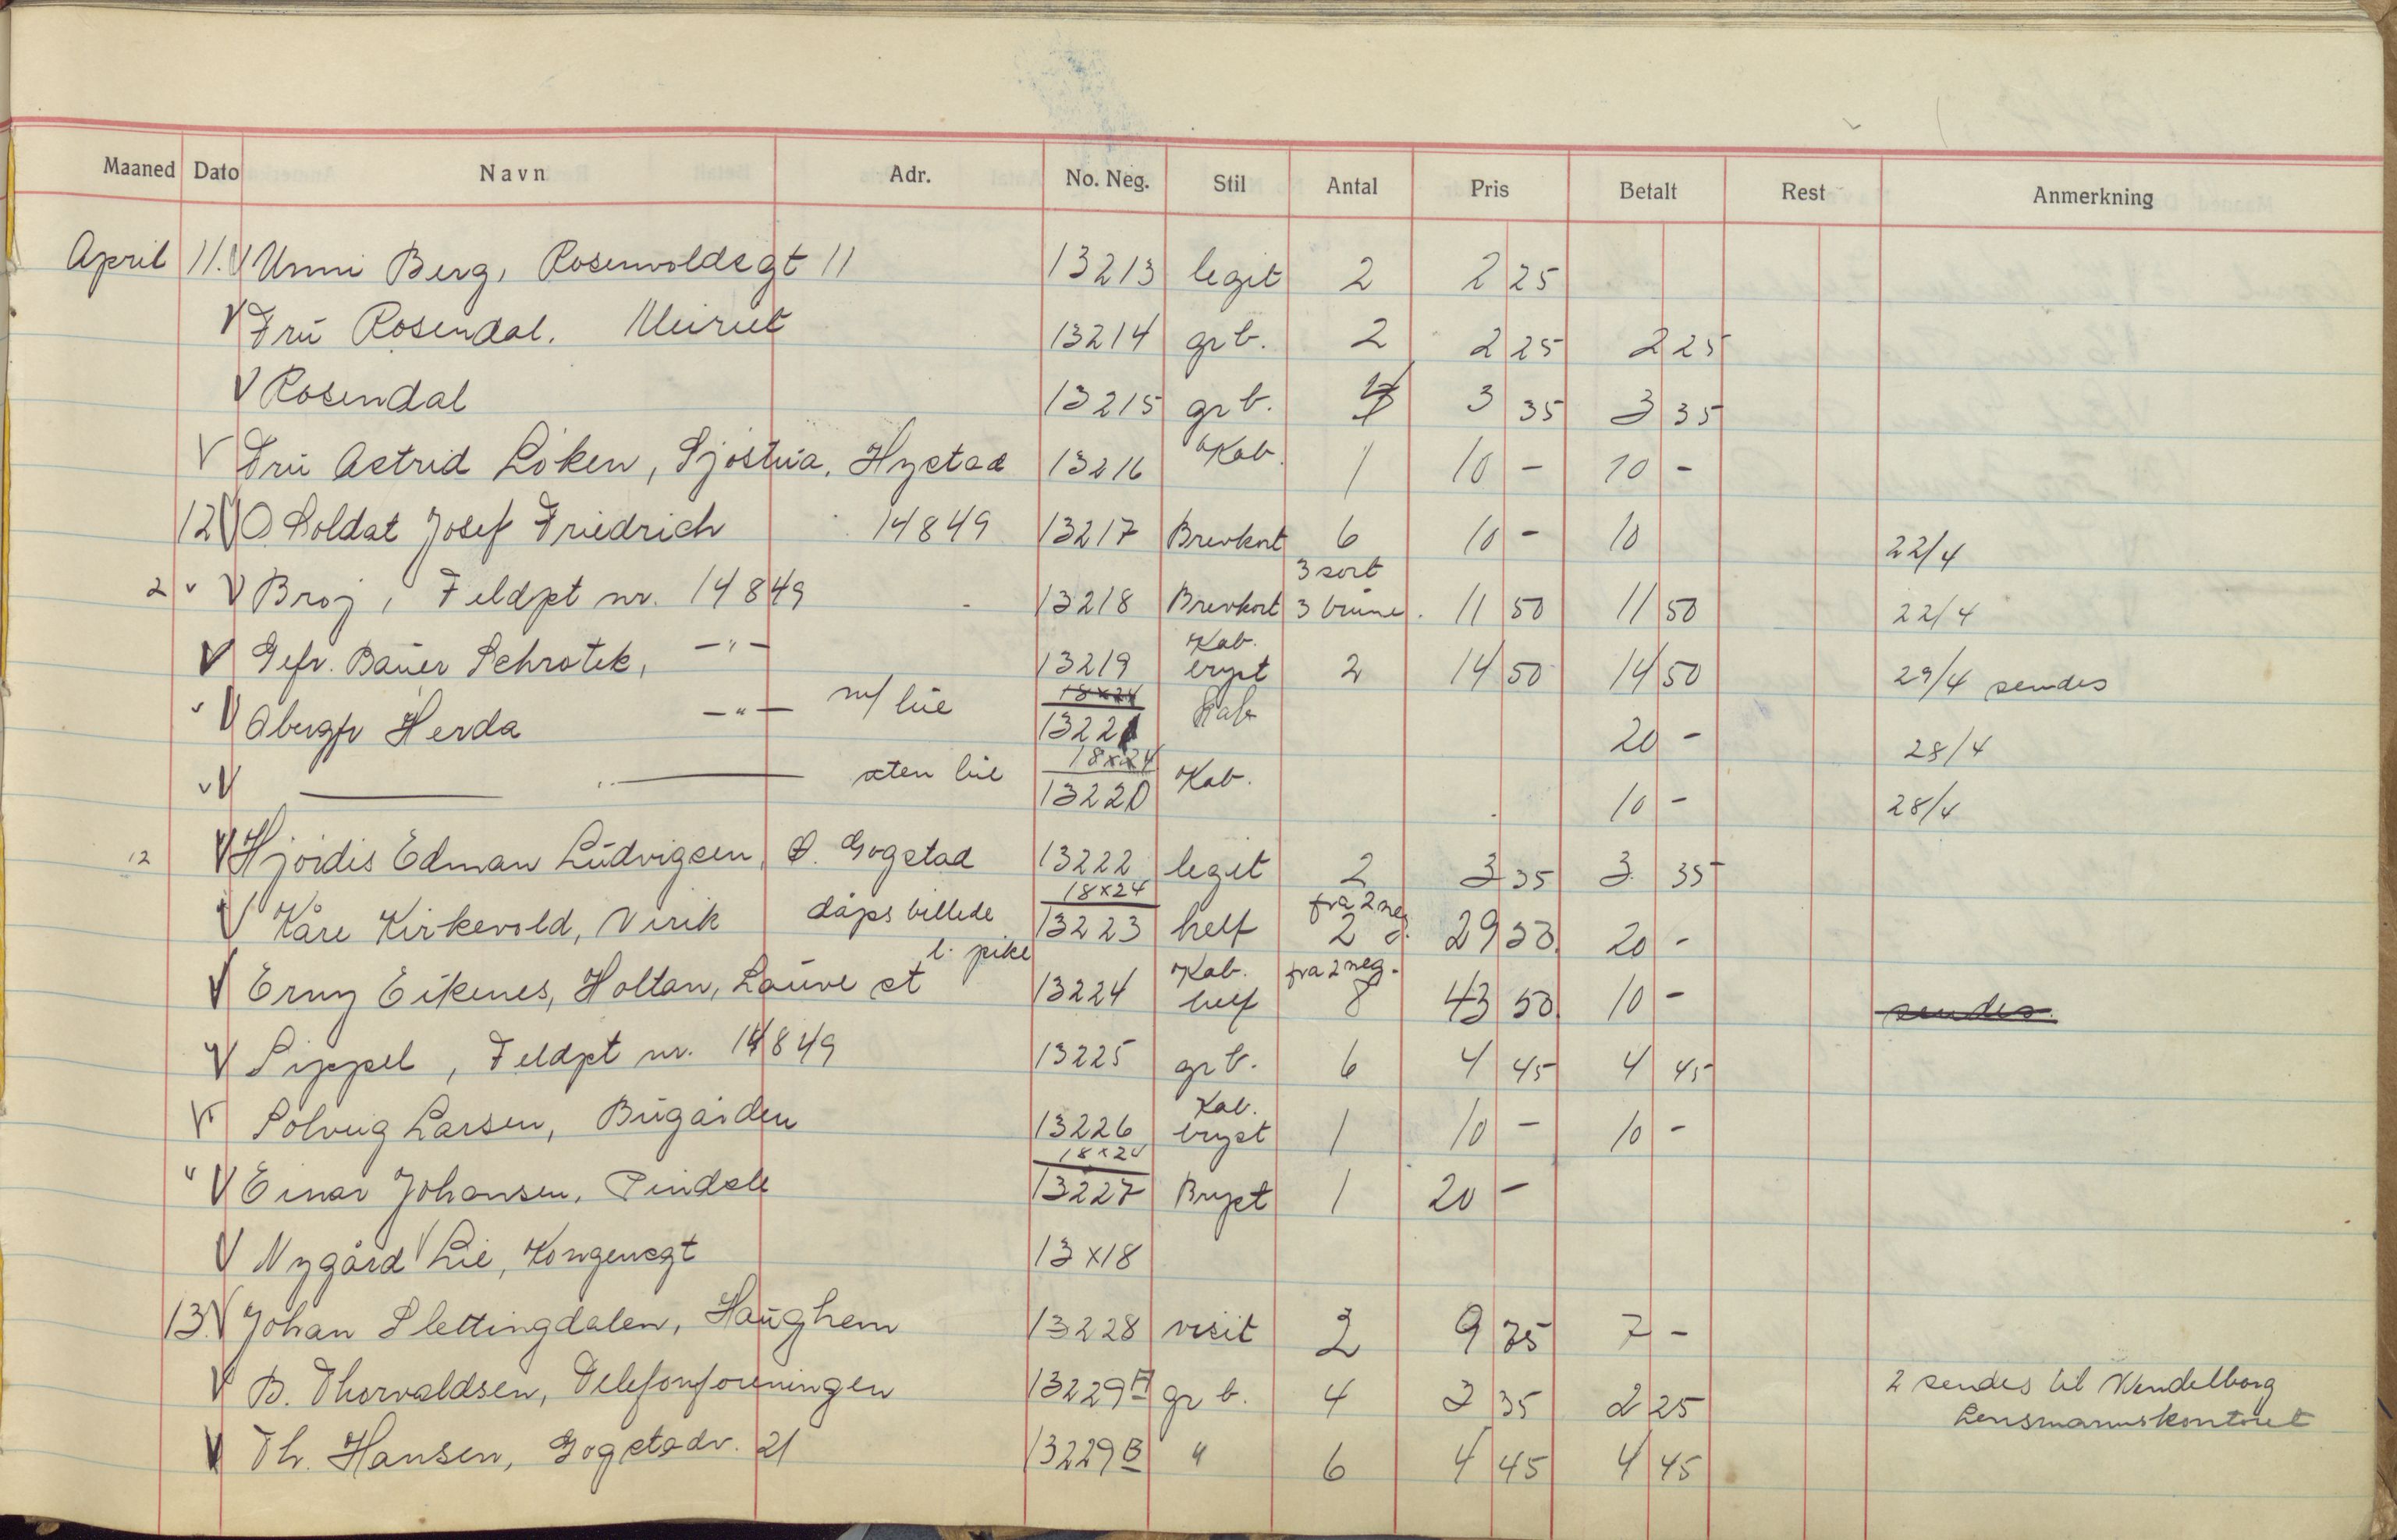 Maaned Dato Navn Adr. No. Neg. Stil Antal Pris Betalt Rest Anmerkning
April 11. V Unni Berg, Rosenvoldsgt 11 13213 legit 2 2 25
V Frü Rosendal. Meiriet 13214 gr b. 2 2 25 2 25
V Rosendal 13215 gr b. 4 3 35 3 35
V Frü Astrid Löken, Sjöstüa, Hystad 13216 Kab. 1 10 - 10 -
12 V O. Soldat Josef Friedrich 14849 13217 Brevkort 6 10 - 10 22/4
2 " V Broj, Feldpt nr. 14849 13218 Brevkort 3 sort 3 brüne. 11 50 11 50 22/4
V Gefr. Baüer Schrotek, -"- 13219 Kab. bryst 2 14 50 14 50 29/4 sendes
" V Obergfr Herda -"- m/ lüe 18x24 13221 Kab 20 - 28/4
" V uten lüe 18x24 13220 Kab. 10 - 28/4
12 V Hjördis Edman Lüdvigsen, Ö. Gogstad 13222 legit 2 3 35 3 35
V Kåre Kirkevold, Virik dåps billede 18x24 13223 helf fra 2 neg. 2 29 50 20 -
l. pike
V Erny Eikenes, Holtan, Laüve st 13224 Kab. helf fra 2 neg. 8 43 50 10 - sendes
V Sippel, Feldpt nr. 14849 13225 gr b. 6 4 45 4 45
V Solveig Larsen, Bügården 13226 Kab. bryst 1 10 - 10 -
" V Einar Johansen, Pindsle 18x24 13227 Bryst 1 20 -
V Nygård Lie, Kongensgt 13x18
13. V Johan Slettingdalen, Haüghem 13228 visit 2 9 75 7 -
V B. Thorvaldsen, Telefonforeningen 13229 A gr b. 4 3 35 2 25 2 sendes til Wendelborg
Lensmannskontoret
V Th. Hansen, Gogstadv. 21 13229 B " 6 4 45 4 45